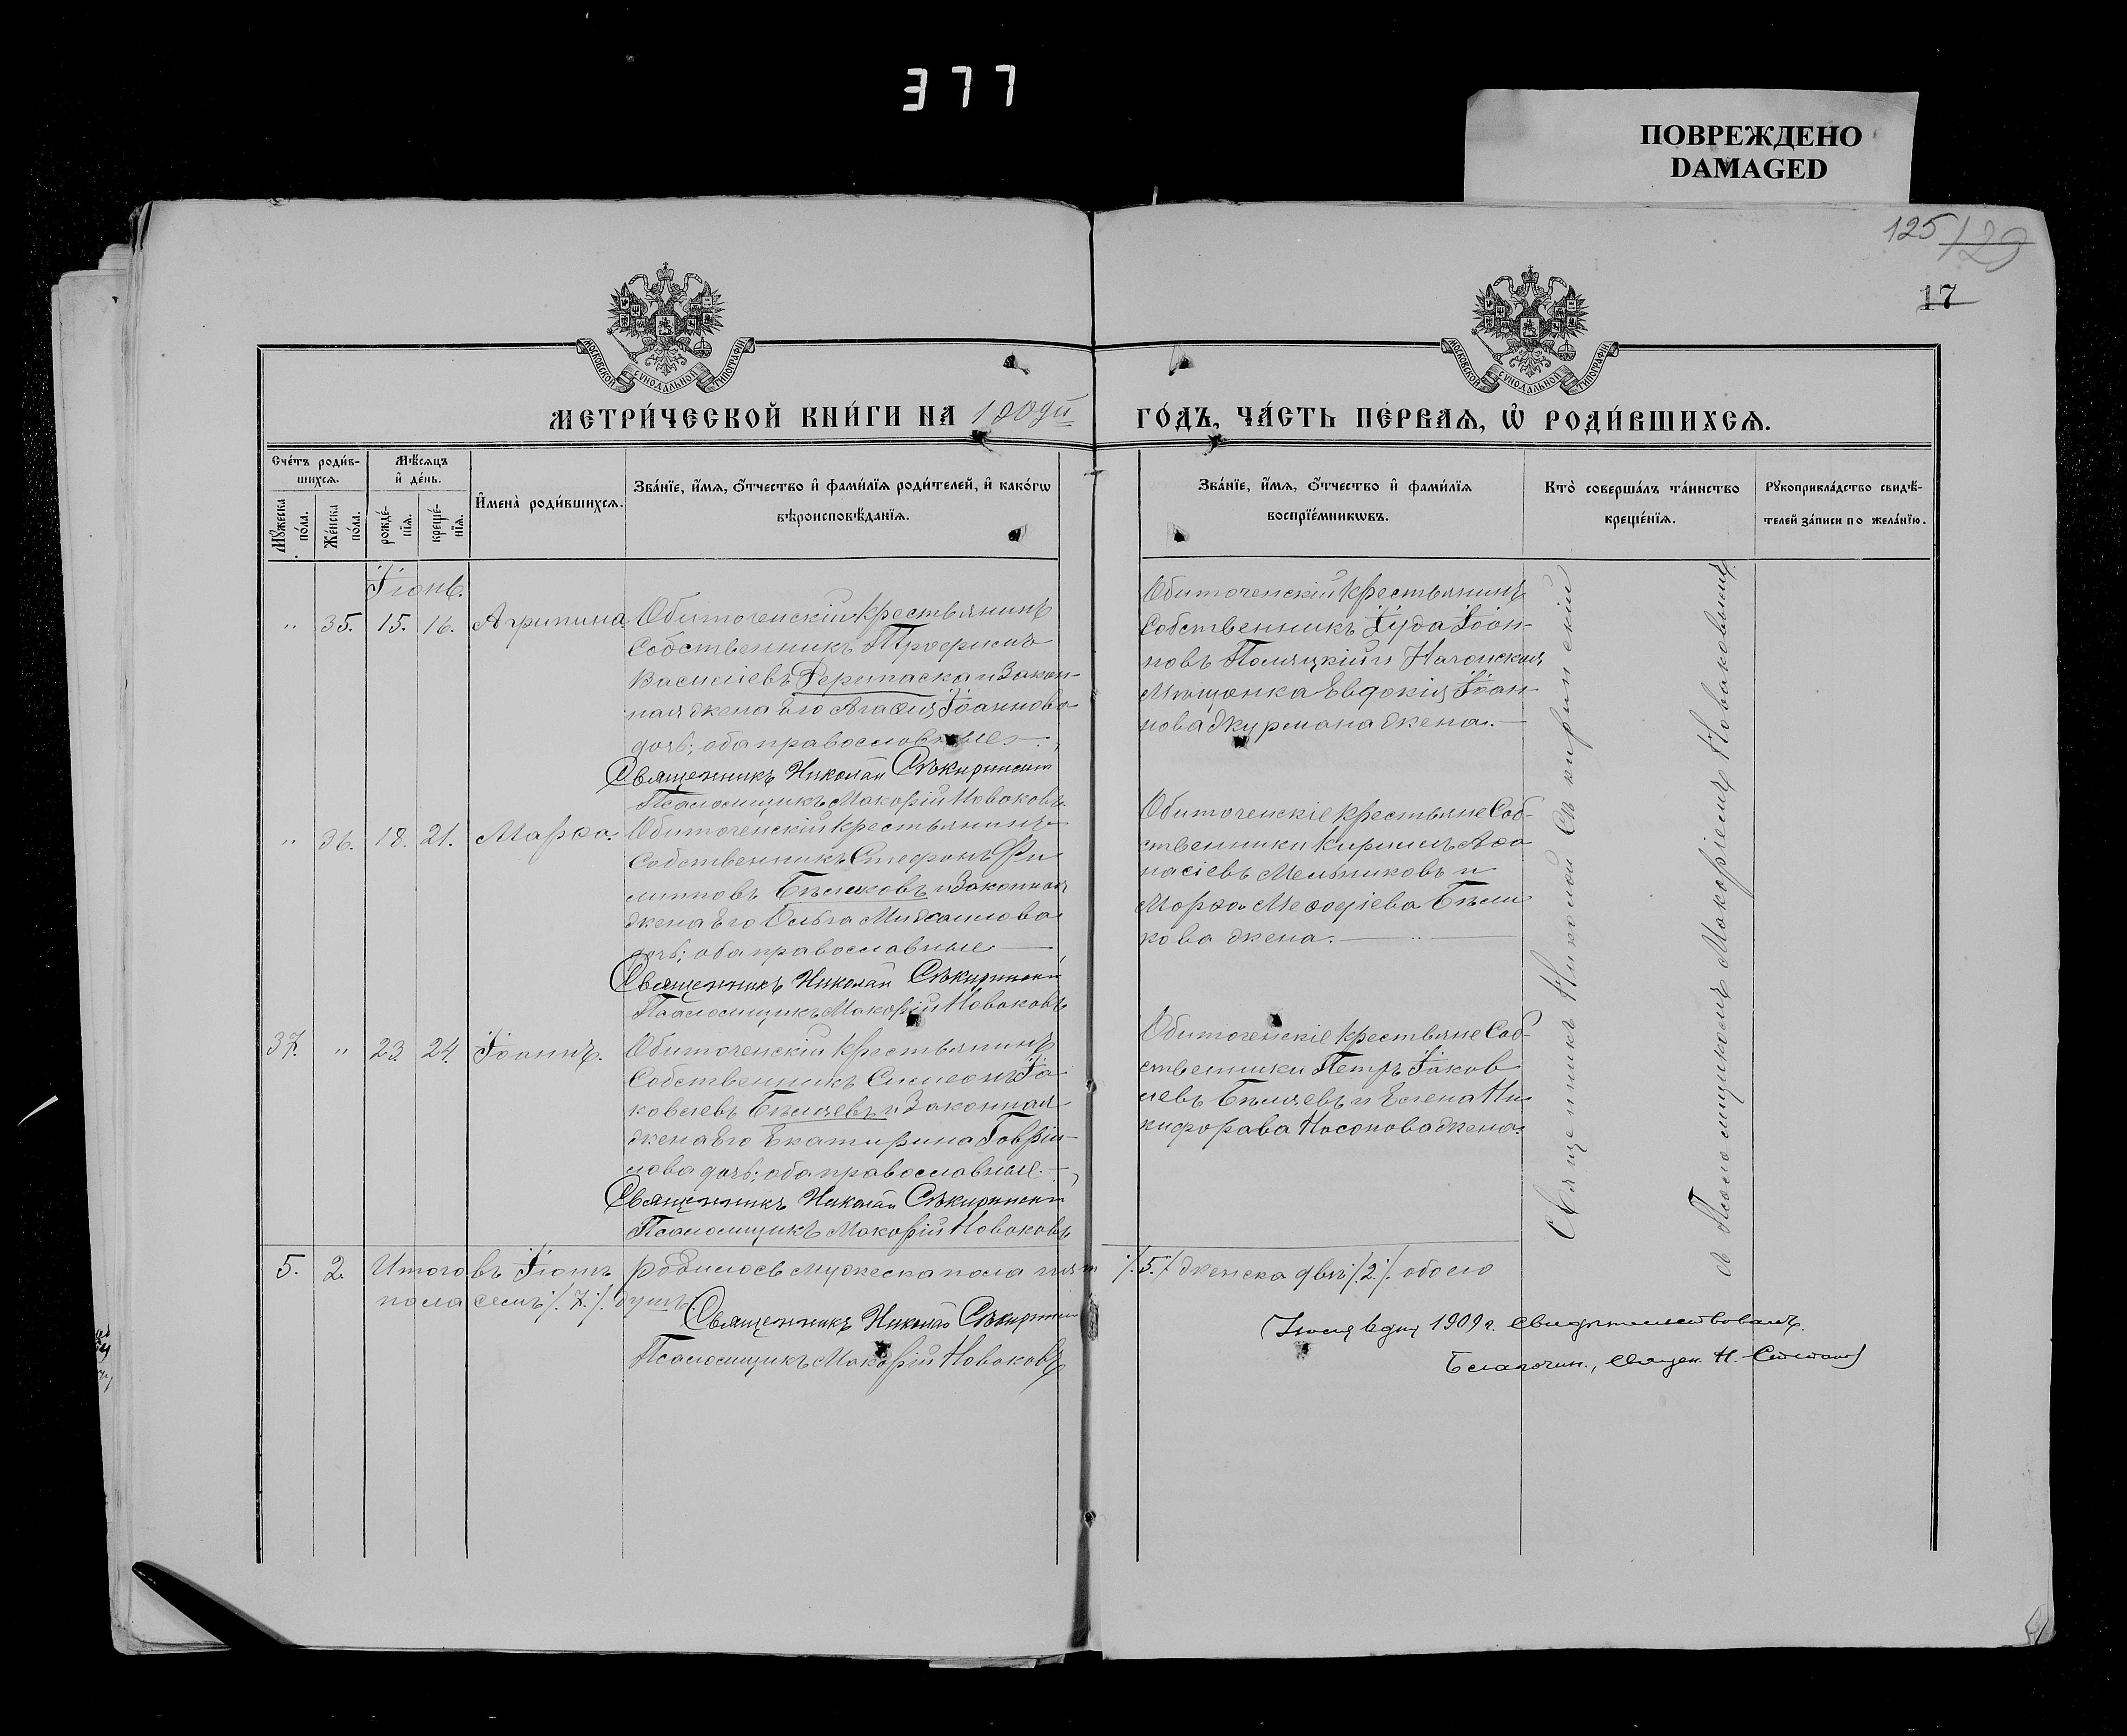 377
ПОВРЕЖДЕНО
DAMAGED
125/129
17
МОСКОВСКОЙ СѴНОДАЛЬНОЙ ТИПОГРАФІИ
МОСКОВСКОЙ СѴНОДАЛЬНОЙ ТИПОГРАФІИ
МЕТРИ́ЧЕСКОЙ КНИ́ГИ НА 1909й ГО́ДЪ, ЧА́СТЬ ПЕ́РВАѦ, Ѡ҆ РОДИ́ВШИХСѦ.
Сче́тъ роди́в-
шихсѧ.
Мѣ́сѧцъ
и҆ де́нь.
Мꙋ́жеска по́ла.
Же́нска по́ла.
рожде́-нїѧ.
креще́-нїѧ.
И҆мена̀ роди́вшихсѧ.
Зва́нїе, и҆́мѧ, ѻ҆́тчество и҆ фами́лїѧ роди́телей, и҆ како́гѡ
вѣроисповѣ́данїѧ.
Зва́нїе, и҆́мѧ, ѻ҆́тчество и҆ фами́лїѧ
воспрїе́мникѡвъ.
Кто̀ соверша́лъ та́инство
креще́нїѧ.
Рꙋкоприкла́дство свидѣ́-
телей за́писи по жела́нїю.
Іюнь.
" 35. 15. 16. Агрипина
Обиточенскій крестьянинъ
Собственникъ Трофимъ
Василіевъ и Закон-
ная жена Его Агафія Іоаннова
дочь; оба православные.
Священникъ Николай Сѣкиринскій
Псаломщикъ Макарій Новаковъ
Обиточенскій крестьянинъ
Собственникъ Іуда Іоан-
новъ и Ногайская
Мѣщанка Евдокія Іоан-
нова жена.
" 36. 18. 21. Марѳа.
Обиточенскій крестьянинъ
Собственникъ Стефанъ Фи
липповъ Бѣликовъ и Законная
жена Его Ольга Михаилова
дочь; оба православные
Священникъ Николай Сѣкиринскій
Псаломщикъ Макарій Новаковъ
Обиточенскіе крестьяне Соб-
ственники Кириллъ Аѳа
насіевъ Мельниковъ и
Марѳа Меѳодіева Бѣли
кова жена.
37. " 23. 24. Іоаннъ.
Обиточенскій крестьянинъ
Собственникъ Симеонъ Іа
ковлевъ Бѣляевъ и Законная
жена Его Екатирина Гаврiи-
лова дочь; оба православные.
Священникъ Николай Сѣкиринскій
Псаломщикъ Макарій Новаковъ
Обиточенскіе крестьяне Соб-
ственники Петръ Іаков
левъ Бѣляевъ и Елена Ни
кифорава Насонова жена.
Священникъ Николай Сѣкиринскій
съ Псаломщикомъ Макаріемъ Новаковымъ
5. 2. Итого въ Іюнѣ родилось мужеска пола пять /.5./ женска двѣ /.2./ обоего
пола семь /.7./ душъ.
Священникъ Николай Сѣкиринскій
Псаломщикъ Макарій Новаковъ
Іюля дня 1909 г. свидѣтельствовалъ.
Благочин., Священ. Н.